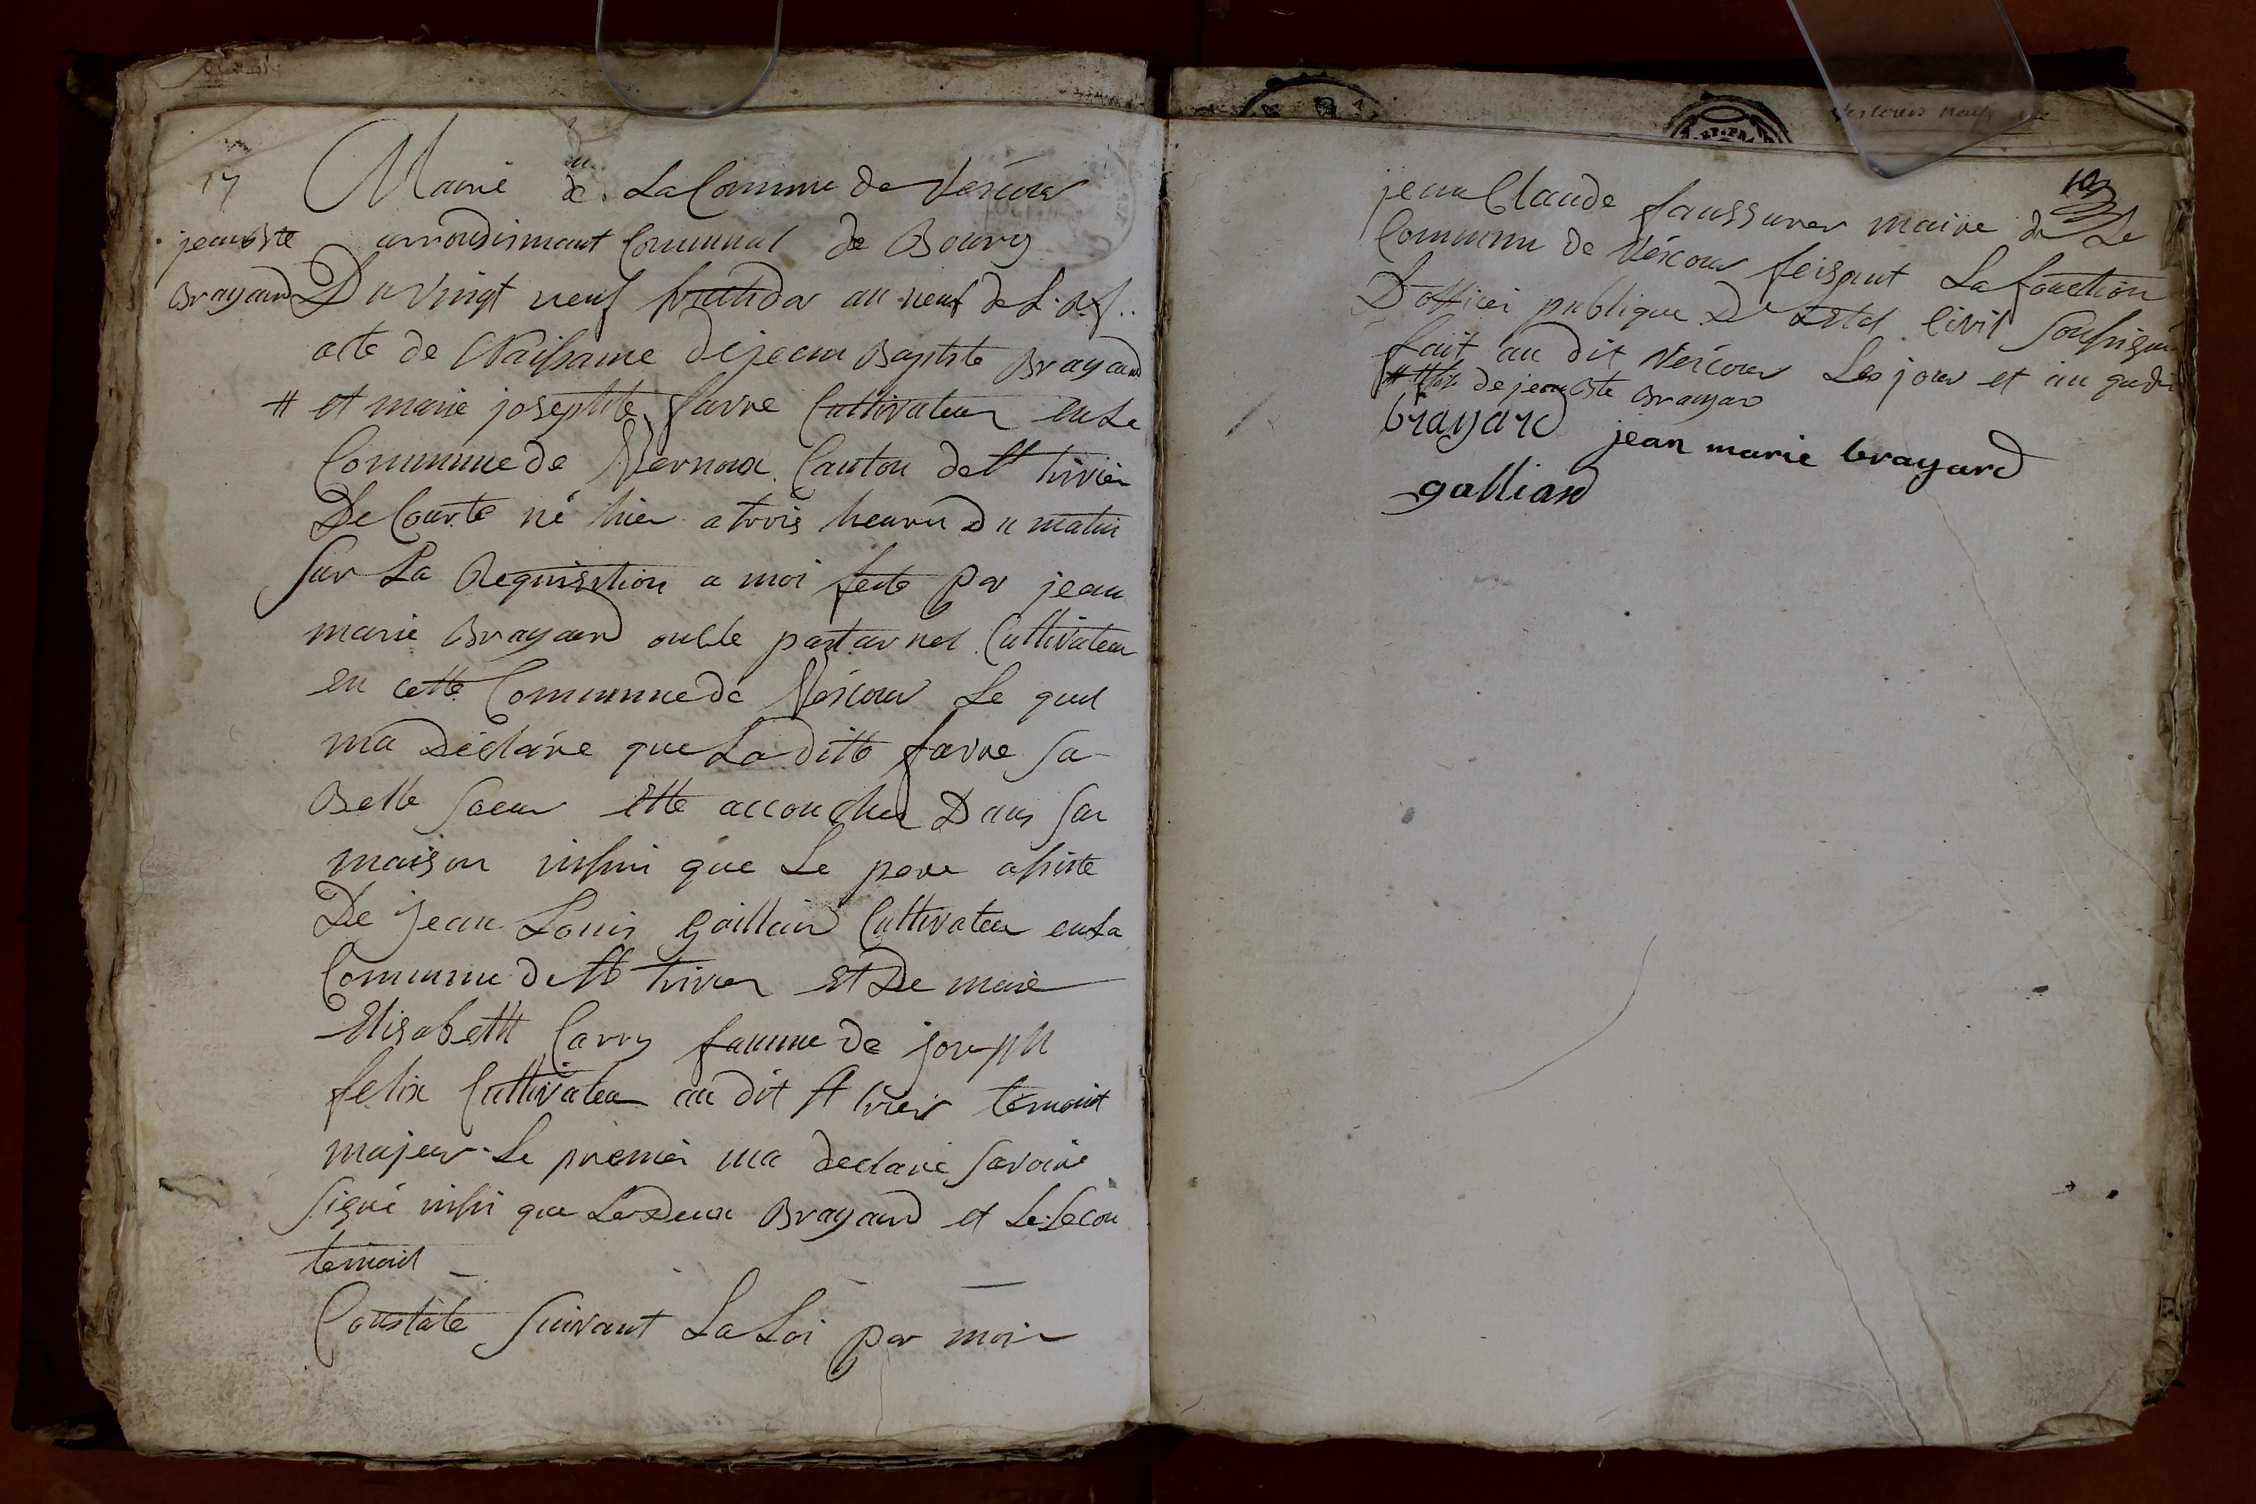 17
Mairie de La Commune de Vescour
jean bste
arrondismant Communal de Bourg
Brayard
Du vingt neuf fructidor an neuf de L. R. f..
acte de Naissance de jean Baptiste Brayard
# et marie josephte favre Cultivateur en La
Commune de Vernoux Canton de St trivier
De Courte né hier a trois heures Du matin
Sur La Requisition a moi feite par jean
marie Brayard oncle paternel Cultivateur
en cette Commune de Vescour Le quel
ma Déclare que La ditte favre Sa
Belle Soeur Ette accouchee Dans Sa
maison inssini que Le pere assiste
De jean Louis Gaillard Cultivateur en La
Commune de St trivier Et De marie
Elisabetht Carry famme de joseph
felix Cultivateur au dit St trivier temoint
majeur Le premier ma declaré Savoire
Signé inssi que Les Deux Brayard et Le Secon
temoint
Constate Suivant La Loi par moi
Vescours neuf
10
jean Claude faussurer maire de La
Commune de Vescour feisant La fonction
D'officier publique De Létat Civil Soussigné
fait au dit Vescour Les jour et an que dit
# fils de jean bste Brayard
brayard jean marie brayard
galliand